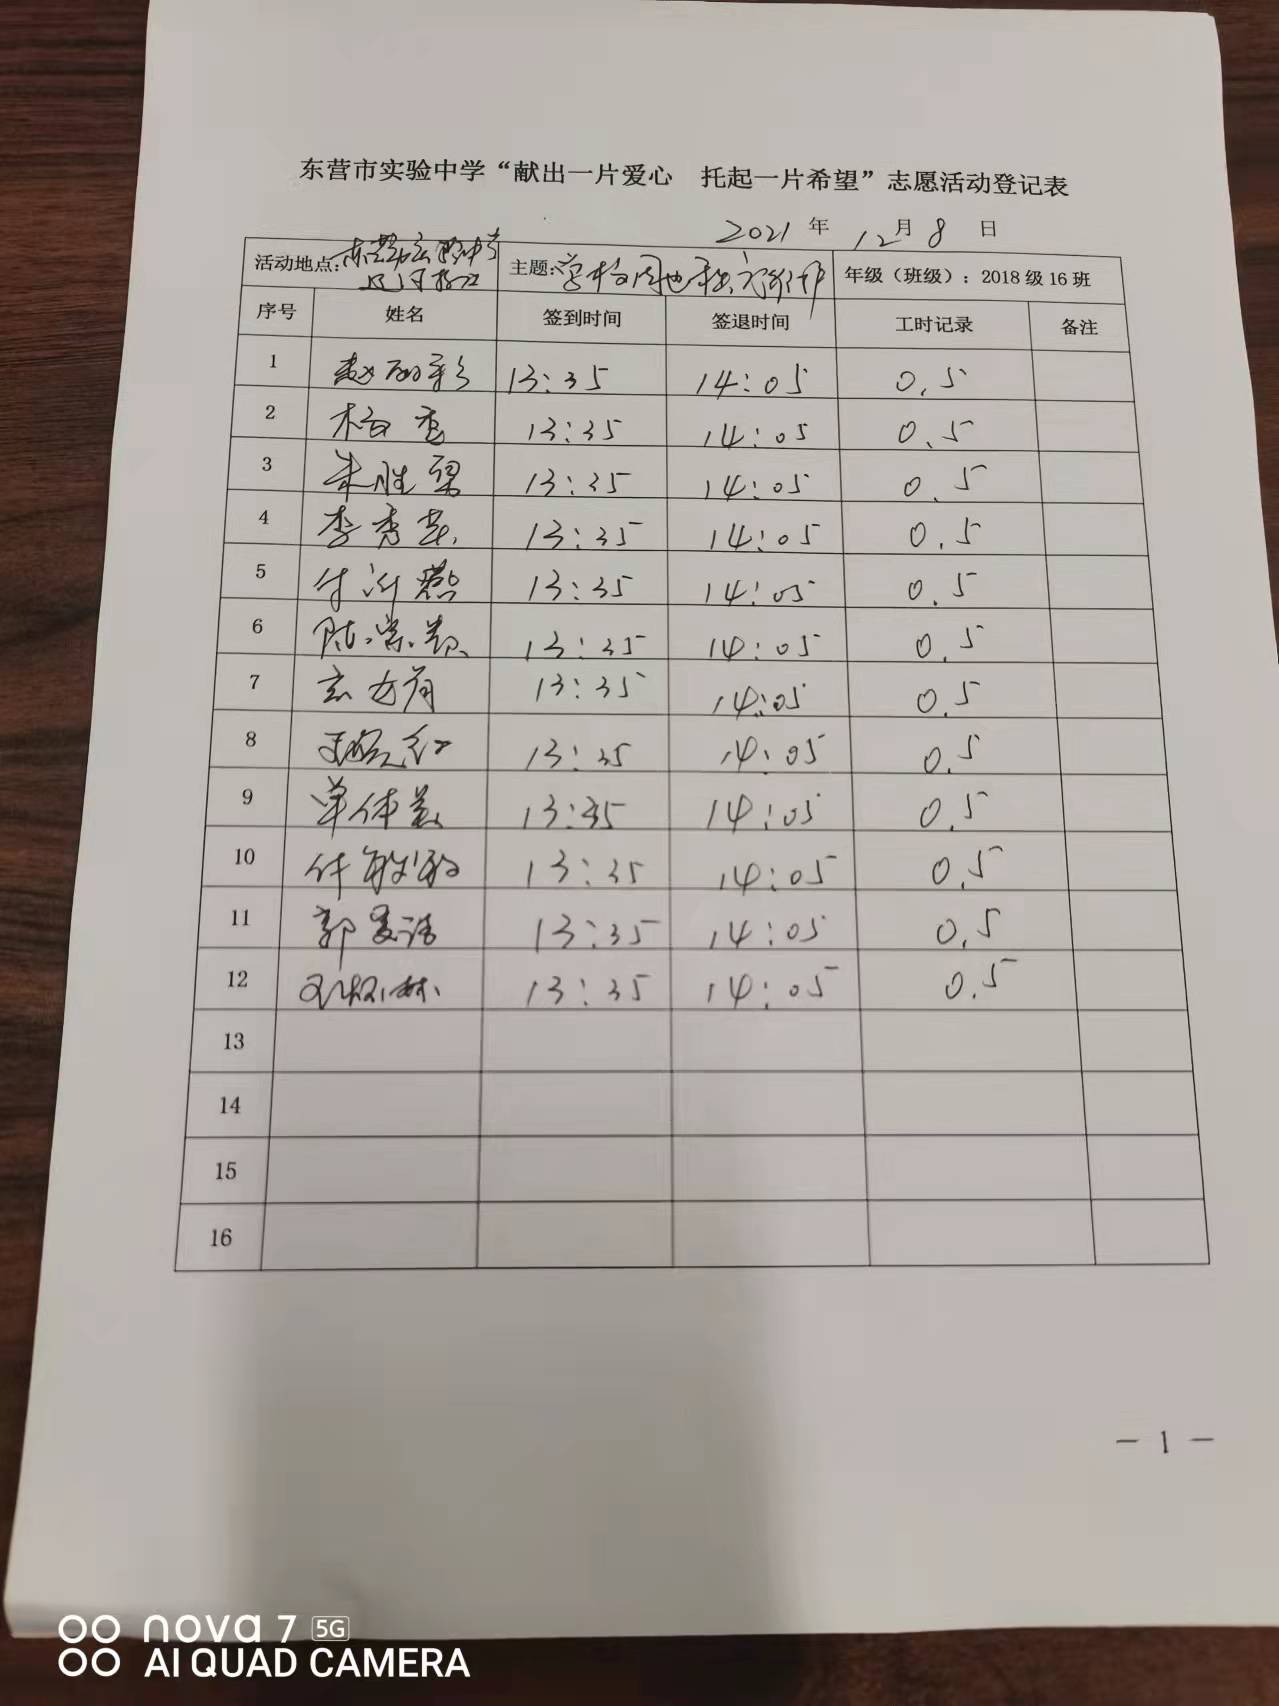 东营市实验中学“献出一片爱心 托起一片希望”志愿活动登记表
2021 年 12 月 8 日
活动地点: 主题: 学校周边 年级（班级）: 2018 级 16 班
序号 姓名 签到时间 签退时间 工时记录 备注
1 13:35 14:05 0.5
2 13:35 14:05 0.5
3 朱胜 13:35 14:05 0.5
4 李秀 13:35 14:05 0.5
5 13:35 14:05 0.5
6 陈 13:35 14:05 0.5
7 13:35 14:05 0.5
8 王 红 13:35 14:05 0.5
9 单体美 13:35 14:05 0.5
10 13:35 14:05 0.5
11 郭 13:35 14:05 0.5
12 13:35 14:05 0.5
13
14
15
16
— 1 —
nova 7 5G
AI QUAD CAMERA